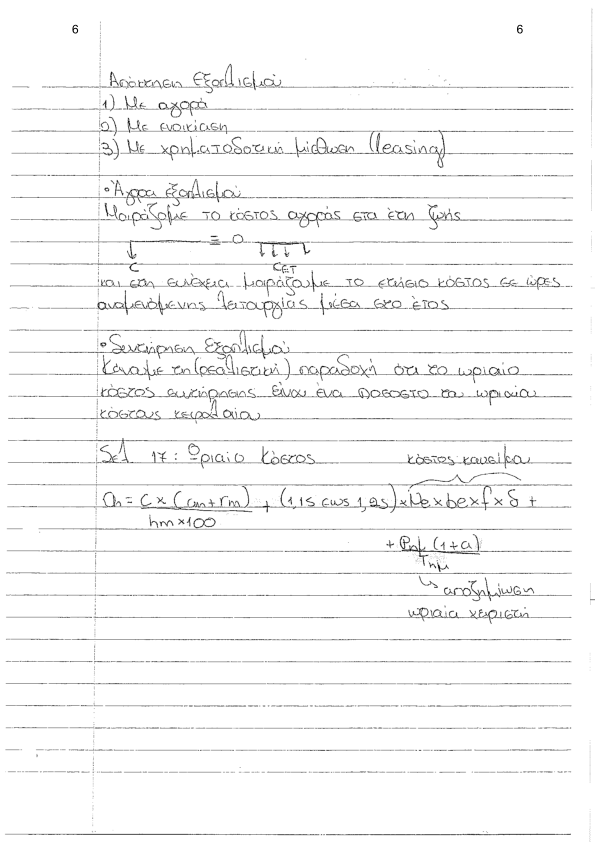 6 6
Απόκτηση Εξοπλισμού
1) Με αγορά
2) Με ενοικίαση
3) Με χρηματοδοτική μίσθωση (leasing)
• Άγορα εξοπλισμού
Μοιράζομε το κόστος αγοράς στα έτη ζωής
≡ 0
C CET
και στη συνέχεια μοιράζουμε το ετήσιο κόστος σε ώρες
αναμενόμενης λειτουργίας μέσα στο έτος
• Συντήρηση Εξοπλισμού
Κάνομε τη (ρεαλιστική) παραδοχή ότι το ωριαίο
κόστος συντήρησης είναι ένα ποσοστό του ωριαίου
κόστους κεφαλαίου
Σελ 17: Ωριαίο Κόστος κόστος καυσίμου
Ch = C x (cm + rm) + (1,15 εως 1,25) x Ne x be x f x δ +
hm x 100
+ Pημ (1+a)
Tημ
↳ αποζημίωση
ωριαία χειριστή